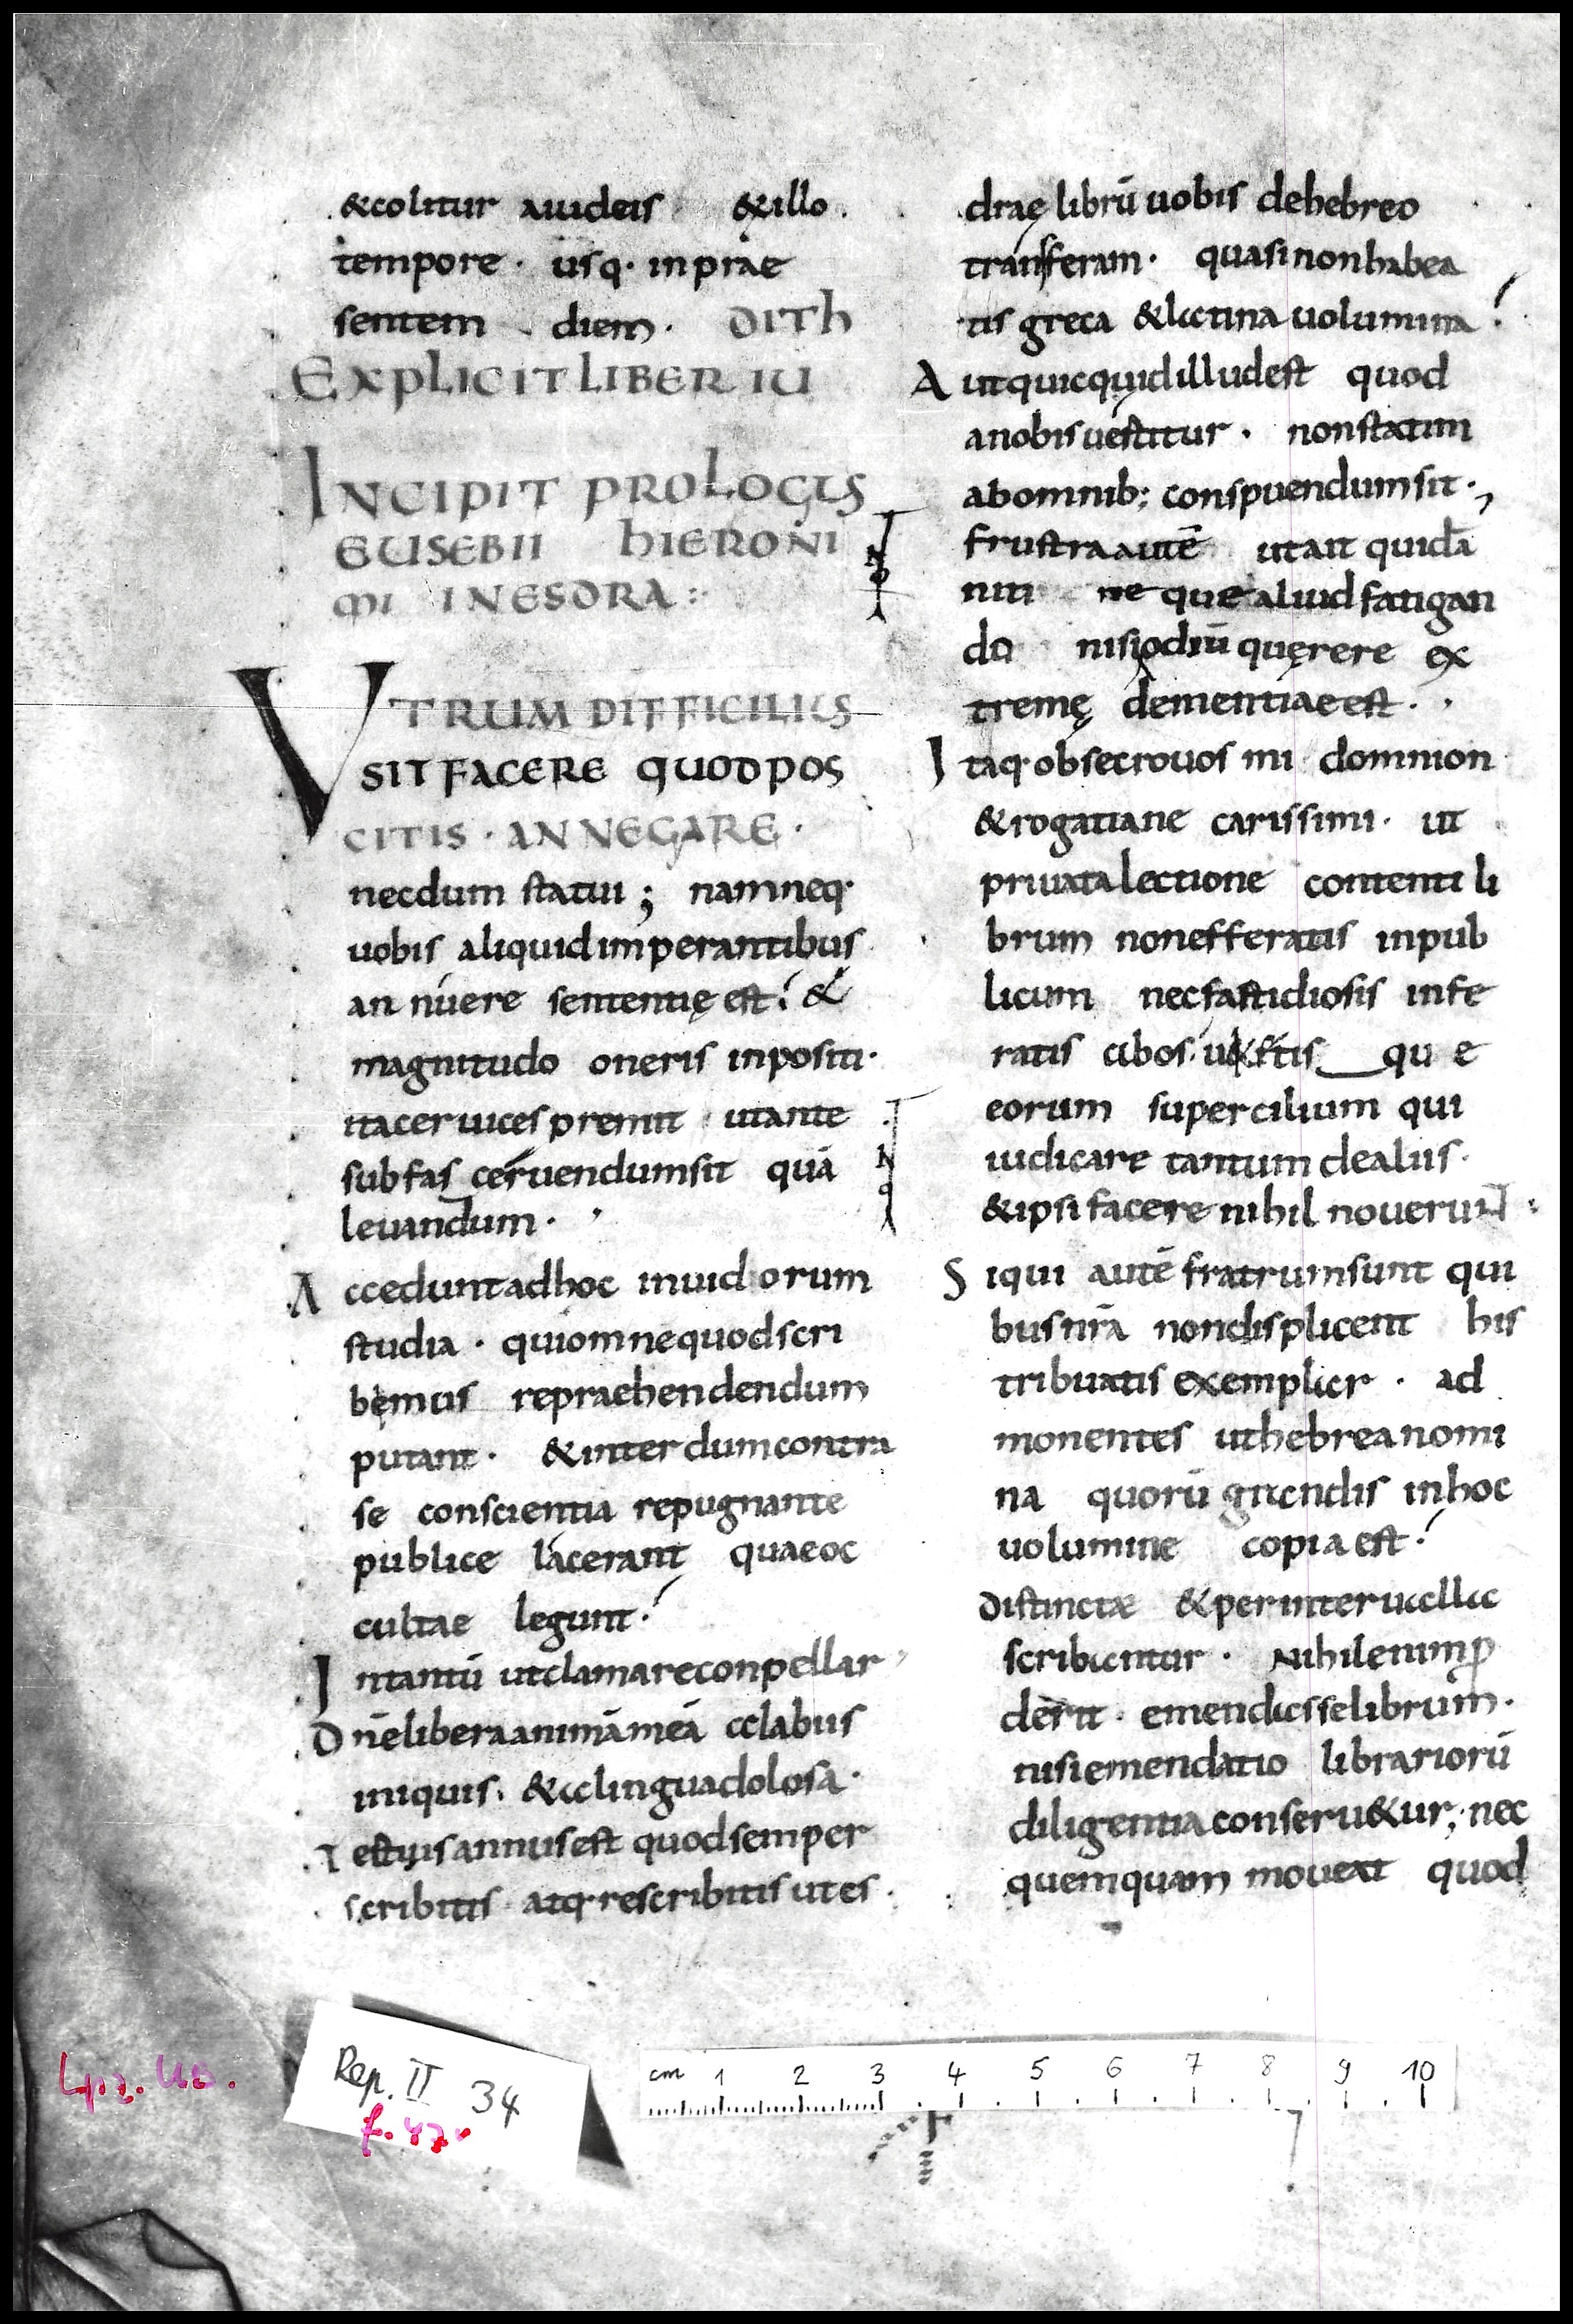 &colitur aiudeis &illo
tempore · usq· inprae
sentem diem · DITH
EXPLICIT LIBER IU
INCIPIT PROLOGUS
EUSEBII HIERONI
MI INESDRA :·
VTRUM DIFFICILIUS
SIT FACERE QUOD POS
CITIS · AN NEGARE ·
necdum statui ; namneq·
uobis aliquid imperantibus
an nuere sententię est ; &
magnitudo oneris inpositi·
itaceruices premit utante
subfas ceruendumsit quā
leuandum · ,
Accedunt adhoc inuidiorum
studia · quiomnequodscri
bęmus repraehendendum
putant · &interdumcontra
se conscientia repugnante
publice lacerant quaeoc
cultae legunt ·
Intantū utclamareconpellar
Dn̄elibera animāmeā alabiis
iniquis · &alinguadolosa ·
Tertiusannusest quodsemper
scribitis atq·rescribitis utes
draę librū uobis dehebreo
transferam · quasinonhabea
tis greca &latina uolumina
Autquicquid illudest quod
anobis uertitur · nonstatim
abomnib; conspuendumsit ·,
frustraautē utait quidā
niti neque aliud fatigan
do nisiodiū quęrere ex
tremę dementiaeest · ,
Itaq·obsecrouos mi domnion
&rogatiane carissimi · ut
priuatalectione contenti li
brum nonefferatis inpub
licum necfastidiosis infe
ratis cibos uitetisque
eorum supercilium qui
iudicare tantum dealiis ·
&ipsi facere nihil nouerunt :
Siqui autē fratrumsunt qui
busnr̄a nondisplicent his
tribuatis exemplar · ad
monentes uthebreanomi
na quorū grandis inhoc
uolumine copiaest
Distinctæ &perinterualla
scribantur · Nihilenimp
derit · emendasselibrum ·
nisiemendatio librariorū
diligentiaconseru&ur ; nec
quemquam moueat quod
Lpz. Ub.
Rep. II 34
f. 47v
cm 1 2 3 4 5 6 7 8 9 10